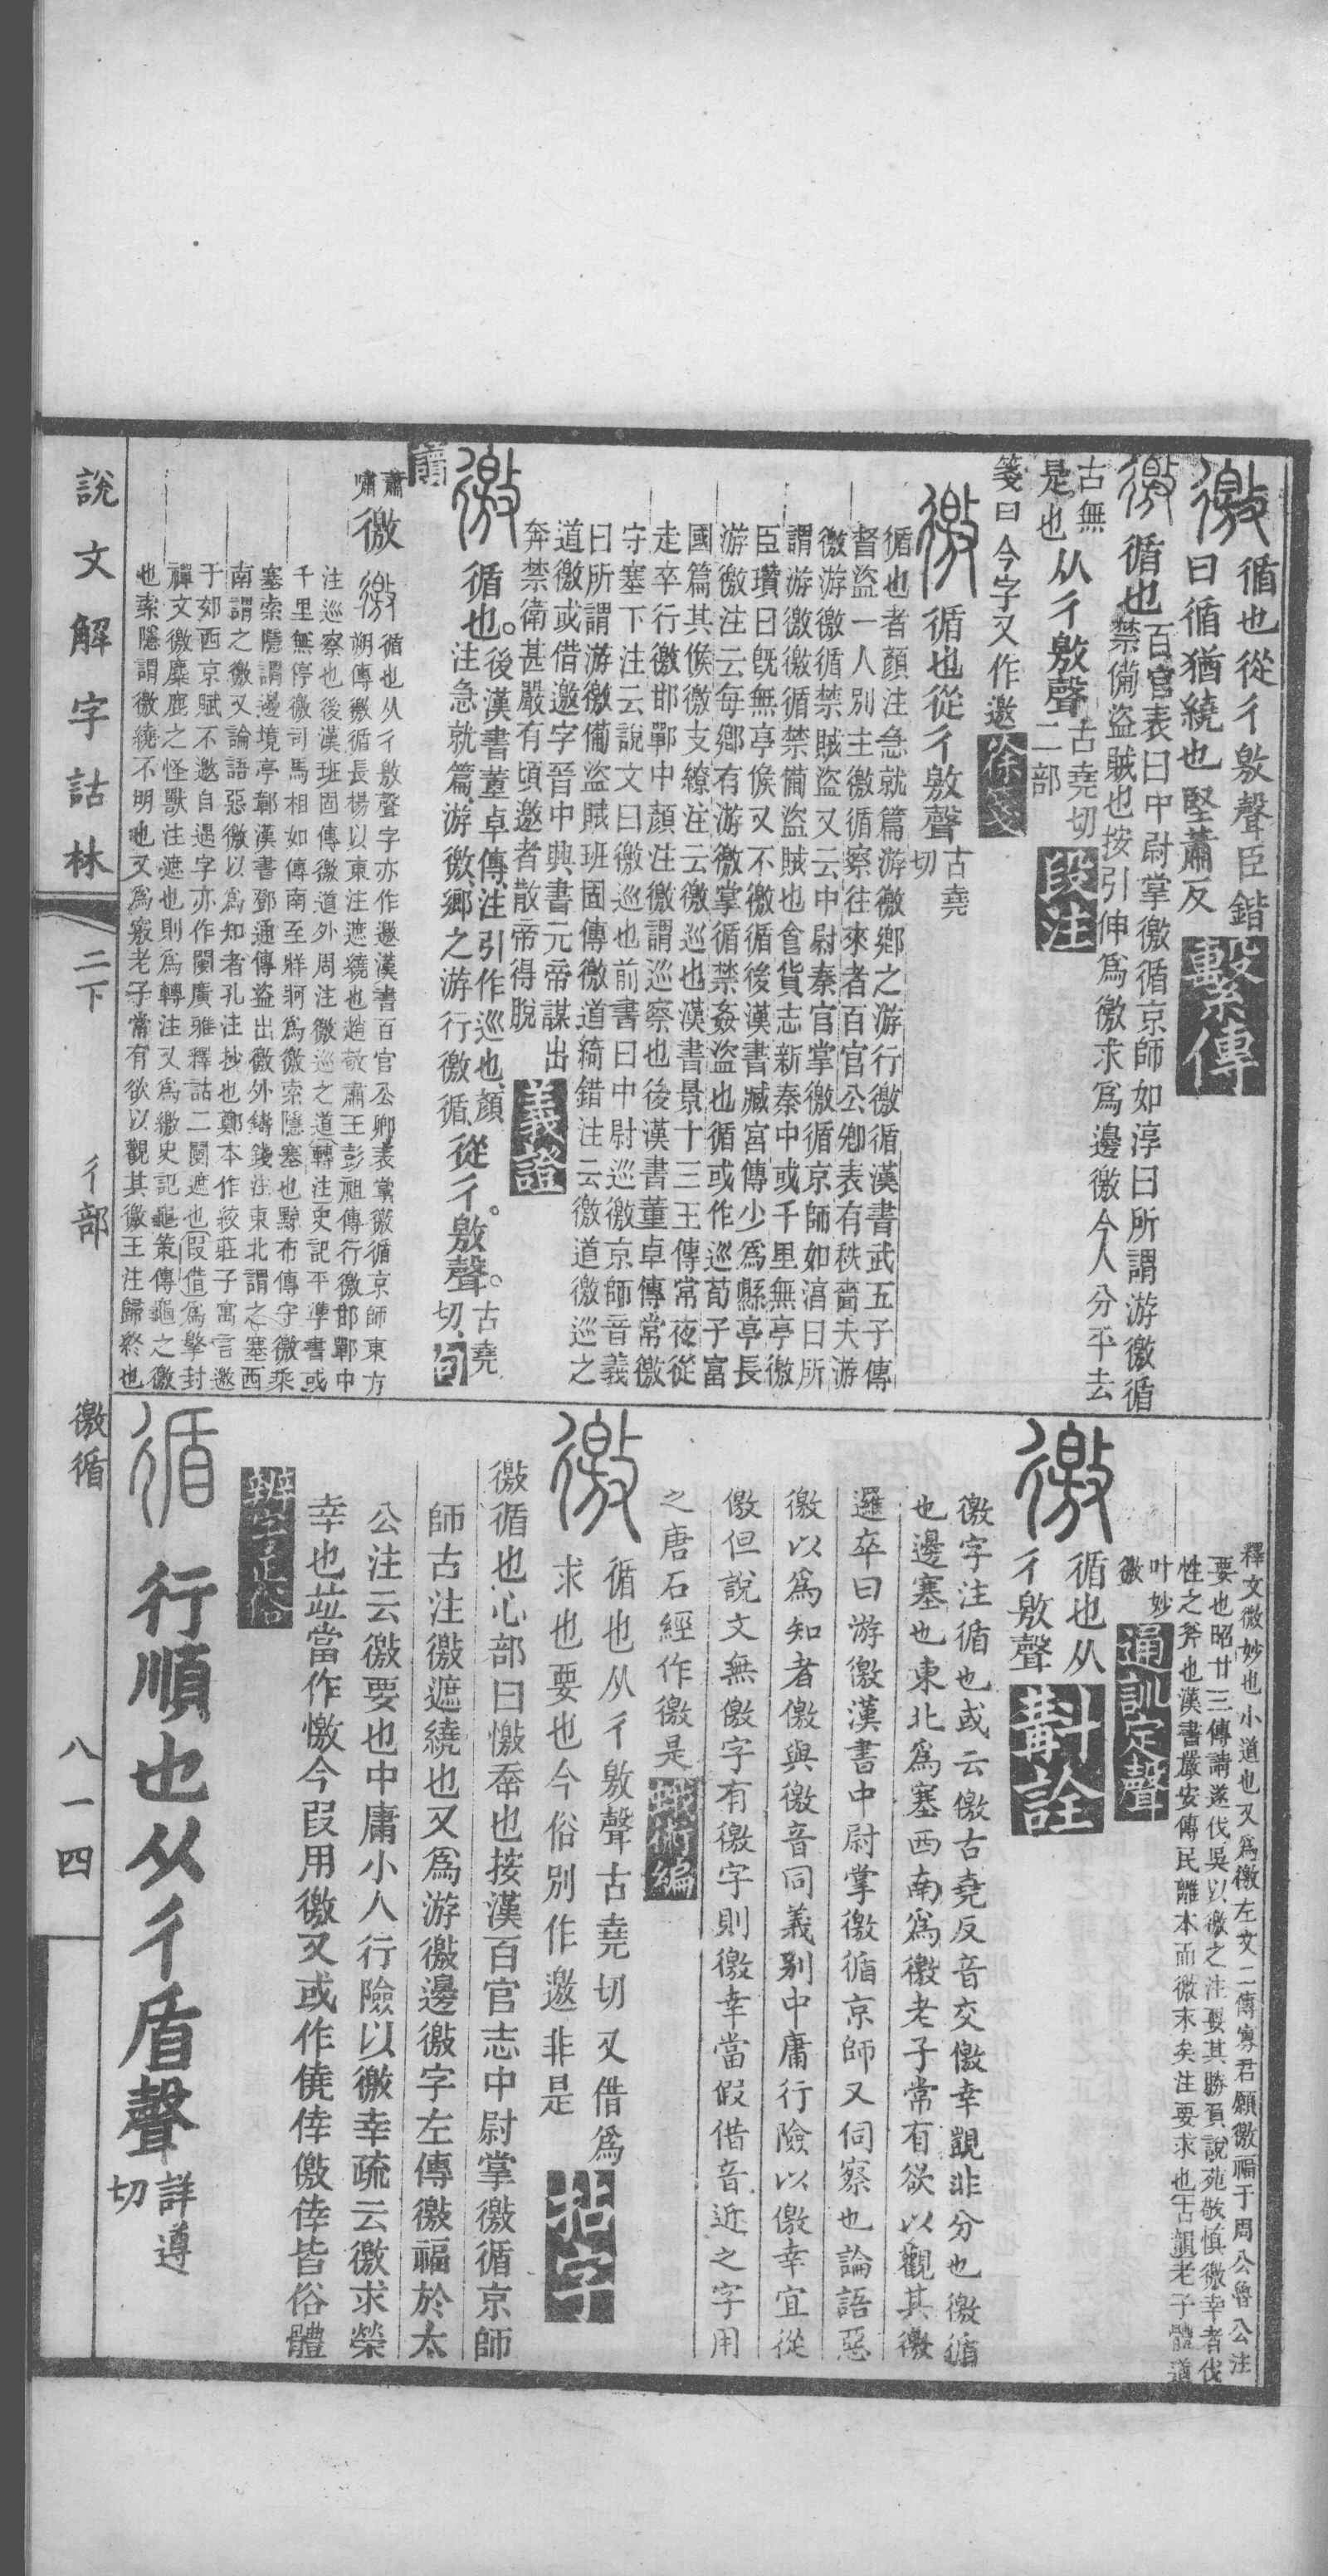 徼
循也從彳敫聲臣鍇
曰循猶繞也堅蕭反
繫傳
徼
循也
百官表曰中尉掌徼循京師如淳曰所謂游徼循
禁備盜賊也按引伸爲徼求爲邊徼今人分平去
古無
是也
从彳敫聲
古堯切
二部
段注
箋曰今字又作邀
徐箋
徼
循也從彳敫聲
古堯
切
循也者顏注急就篇游徼鄉之游行徼循漢書武五子傳
督盜一人別主徼循察往來者百官公卿表有秩嗇夫游
徼游徼循禁賊盜又云中尉秦官掌徼循京師如淳曰所
謂游徼徼循禁備盜賊也食貨志新秦中或千里無亭徼
臣瓚曰旣無亭候又不徼循後漢書臧宮傳少爲縣亭長
游徼注云每鄉有游徼掌循禁姦盜也循或作巡荀子富
國篇其候徼支繚注云徼巡也漢書景十三王傳常夜從
走卒行徼邯鄲中顏注徼謂巡察也後漢書董卓傳常徼
守塞下注云說文曰徼巡也前書曰中尉巡徼京師音義
曰所謂游徼備盜賊班固傳徼道綺錯注云徼道徼巡之
道徼或借邀字晉中興書元帝謀出
奔禁衛甚嚴有頃邀者散帝得脫
義證
徼
循也。
後漢書董卓傳注引作巡也顏
注急就篇游徼鄉之游行徼循
從彳。敫聲。
古堯
切
句
讀
蕭
嘯
徼
徼
循也从彳敫聲字亦作邀漢書百官公卿表掌徼循京師東方
朔傳徼循長楊以東注遮繞也趙敬肅王彭祖傳行徼邯鄲中
注巡察也後漢班固傳徼道外周注徼巡之道轉注史記平準書或
千里無停徼司馬相如傳南至牂牁爲徼索隱塞也黥布傳守徼乘
塞索隱謂邊境亭鄣漢書鄧通傳盜出徼外鑄錢注東北謂之塞西
南謂之徼又論語惡徼以爲知者孔注抄也鄭本作絞莊子寓言邀
于郊西京賦不邀自遇字亦作闄廣雅釋詁二闄遮也叚借爲擊封
禪文徼麋鹿之怪獸注遮也則爲轉注又爲繳史記龜策傳龜之徼
也索隱謂徼繞不明也又爲竅老子常有欲以觀其徼王注歸終也
釋文微妙也小道也又爲憿左文二傳寡君願徼福于周公魯公注
要也昭廿三傳請遂伐吳以徼之注要其勝負說苑敬慎徼幸者伐
性之斧也漢書嚴安傳民離本而徼末矣注要求也古韻老子體道
叶妙
徼
通訓定聲
徼
循也从
彳敫聲
斠詮
徼字注循也或云儌古堯反音交儌幸覬非分也徼循
也邊塞也東北爲塞西南爲徼老子常有欲以觀其徼
邏卒曰游徼漢書中尉掌徼循京師又伺察也論語惡
徼以爲知者儌與徼音同義別中庸行險以儌幸宜從
儌但說文無儌字有徼字則徼幸當假借音近之字用
之唐石經作徼是
蛾術編
徼
循也从彳敫聲古堯切又借爲
求也要也今俗別作邀非是
拈字
徼循也心部曰憿㚔也按漢百官志中尉掌徼循京師
師古注徼遮繞也又爲游徼邊徼字左傳徼福於太
公注云徼要也中庸小人行險以徼幸疏云徼求榮
幸也竝當作憿今叚用徼又或作僥倖儌倖皆俗體
辨字正俗
循
行順也从彳盾聲
詳遵
切
說文解字詁林
二下
彳部
徼循
八一四